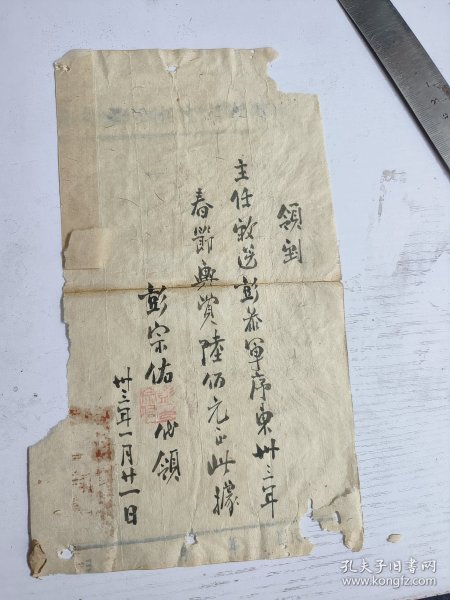 領到
主任致送彭參軍序東卅三年
春節輿賞陸佰元正此據
彭宗佑代領
卅三年一月廿一日
孔夫子旧书网
www.kongfz.com